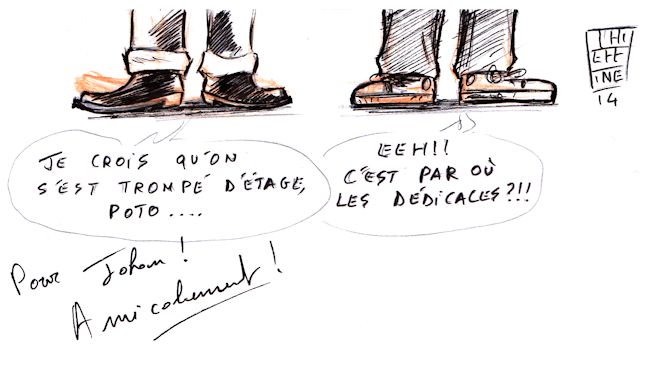 JE CROIS QU'ON
S'EST TROMPÉ D'ÉTAGE,
POTO....
EEH!!
C'EST PAR OÙ
LES DÉDICACES?!!
THI
EFF
INE
14
Pour Johan !
Amicalement !